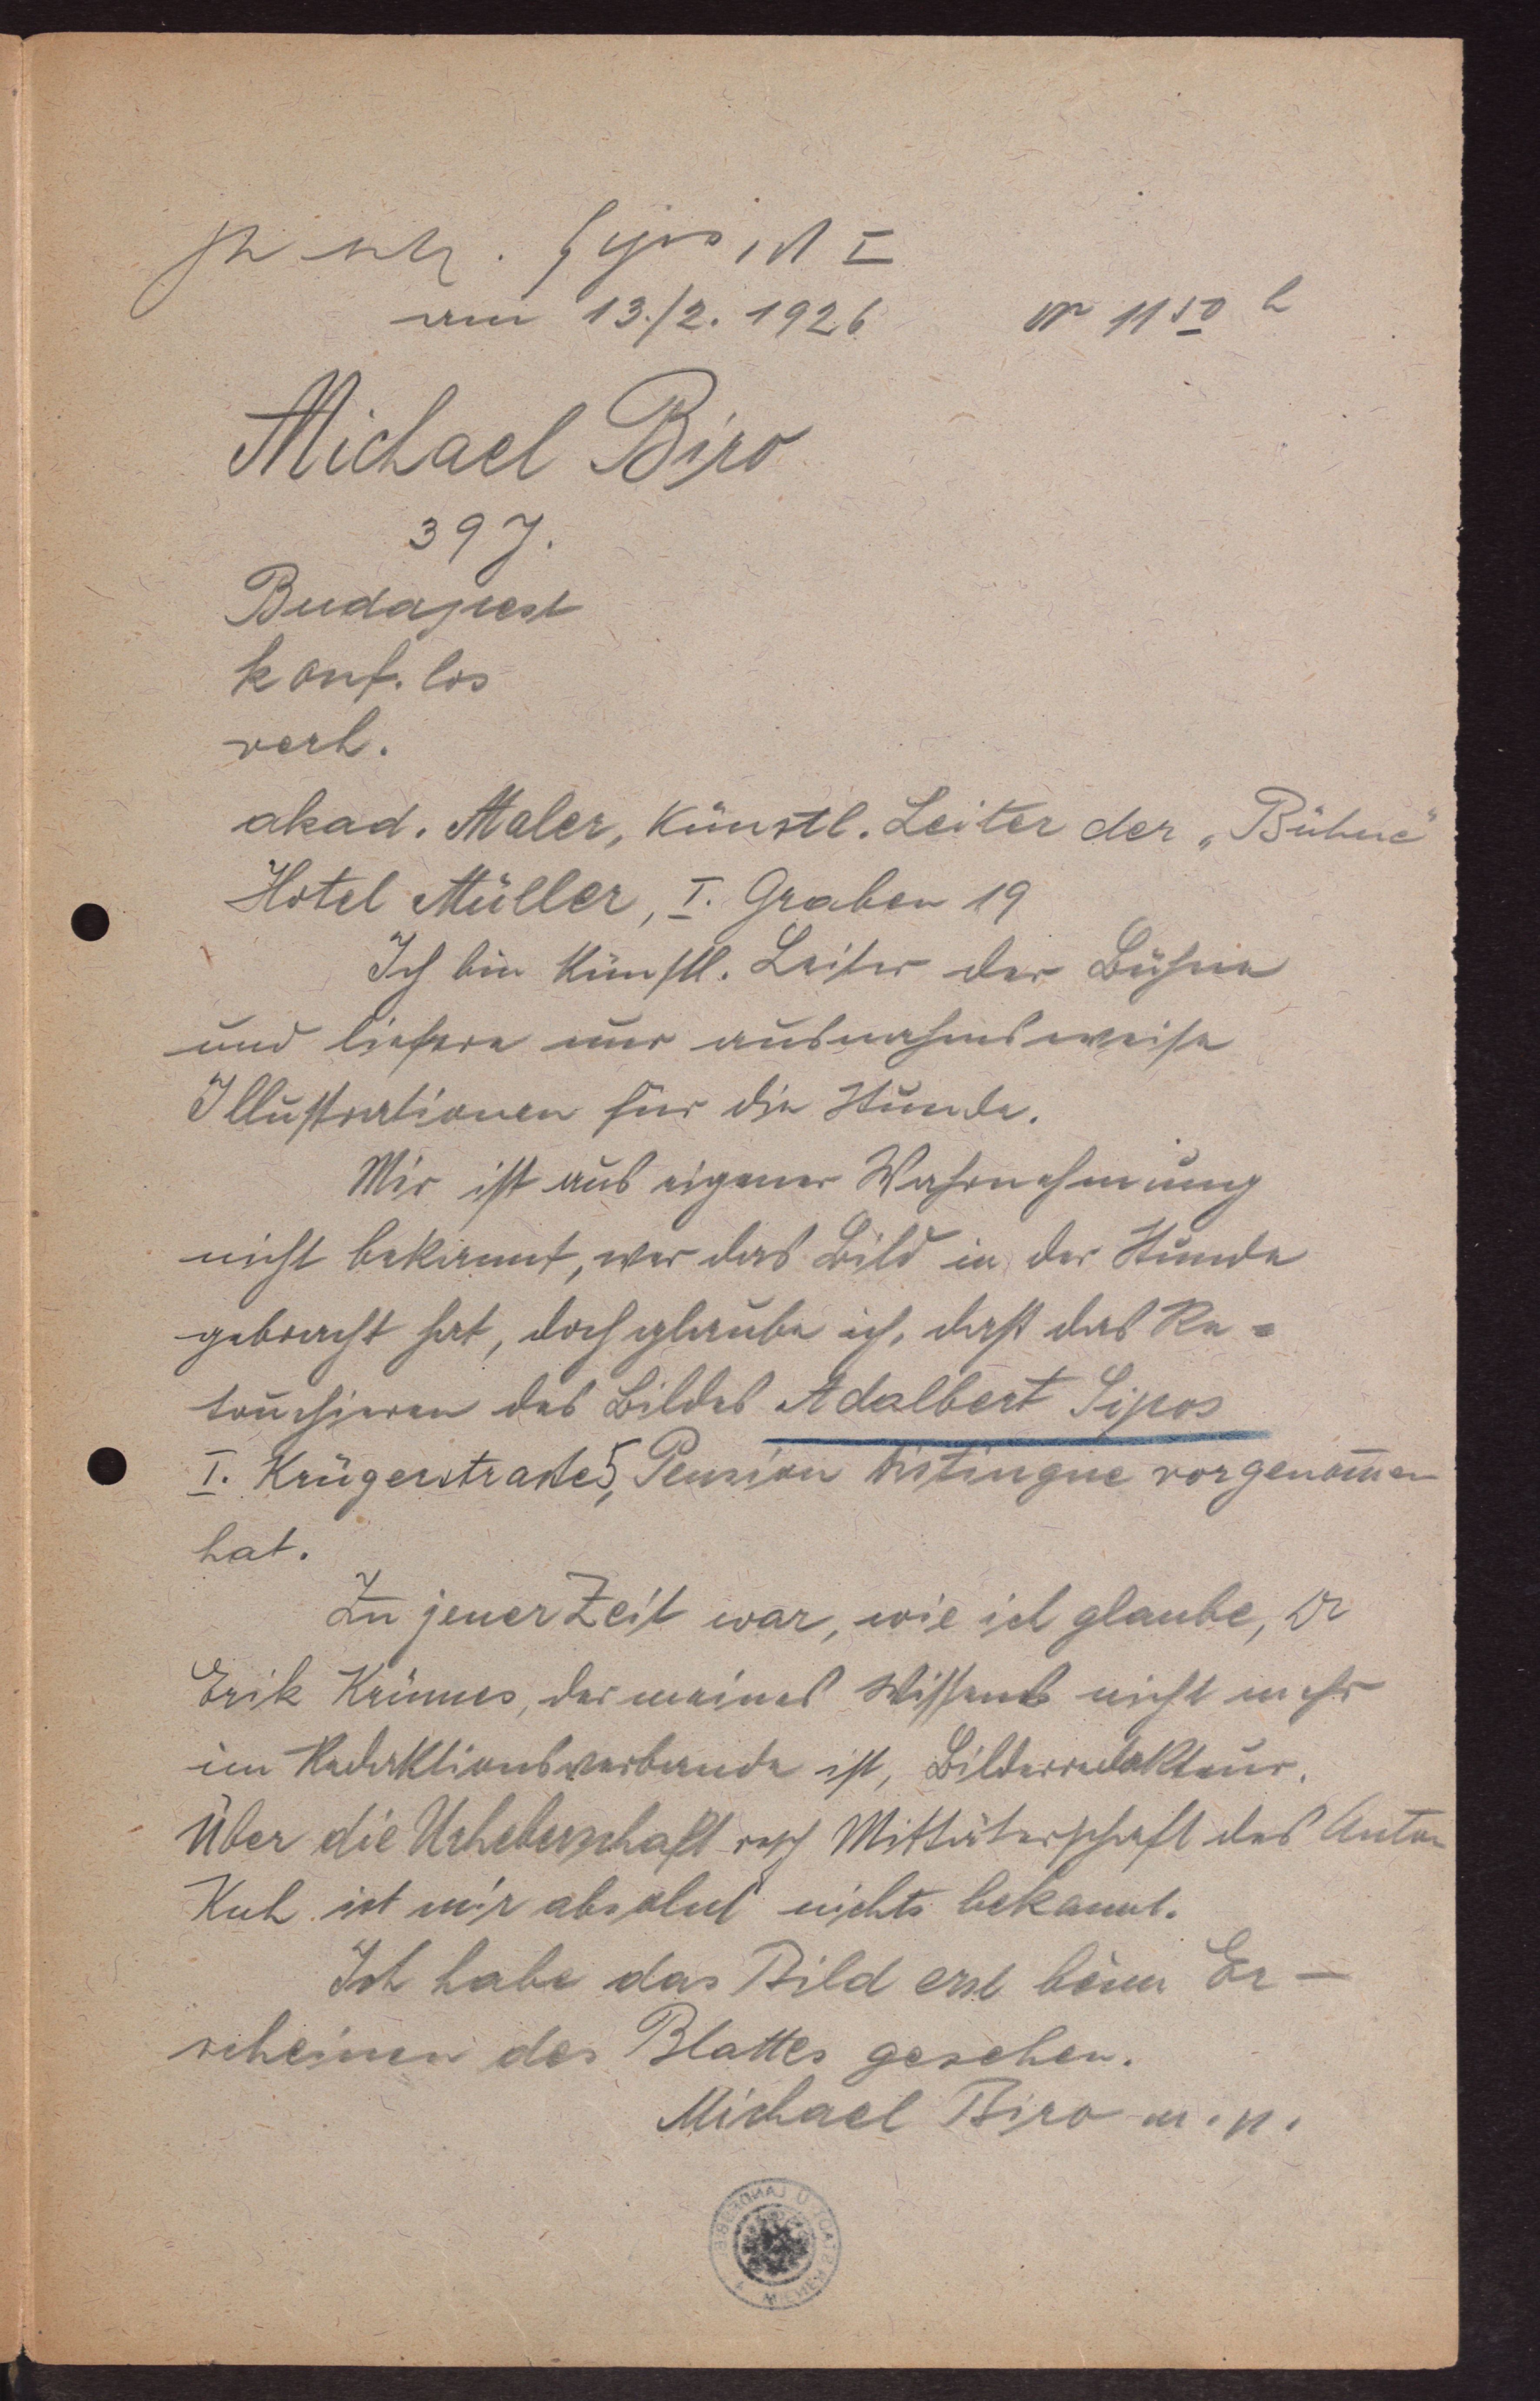 am 13./2. 1926 11 50 h
Michael Biro
39 J.
Budapest
konf. los
verh.
akad. Maler, Künstl. Leiter der „Bühne“
Hotel Müller, I. Graben 19
Ich bin künstl. Leiter der Bühne
und liefere nur ausnahmsweise
Illustrationen für die Stunde.
Mir ist aus eigener Wahrnehmung
nicht bekannt, wer das Bild in der Stunde
gebracht hat, doch glaube ich, daß das Re-
touchieren des Bildes Adalbert Sipos
I. Krügerstraße 5, Pension Distingue vorgenom̄en
hat.
Zu jener Zeit war, wie ich glaube, Dr
Erik Krünes, der meines Wissens nicht mehr
im Redaktionsverbande ist, Bilderredakteur.
Über die Urheberschaft resp Mittäterschaft des Anton
Kuh ist mir absolut nichts bekannt.
Ich habe das Bild erst beim Er-
scheinen des Blattes gesehen.
Michael Biro m. p.